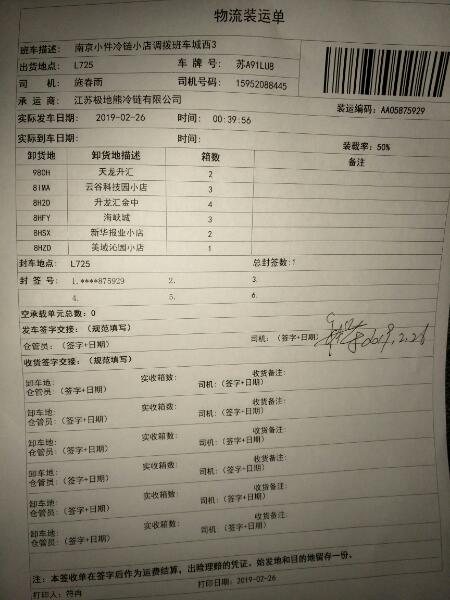 物流装运单
班车描述: 南京小件冷链小店调拨班车城西3
出货地点: L725 车 牌 号: 苏A91LU8
司 机: 施春雨 司机号码: 15952088445
承 运 商: 江苏极地熊冷链有限公司 装运编码: AA05875929
实际发车日期: 2019-02-26 时间: 00:39:56
实际到车日期: 时间: 装载率: 50%
卸货地 卸货地描述 箱数 备注
980H 天龙升汇 2
81MA 云谷科技园小店 3
8H2D 升龙汇金中 4
8HFY 海峡城 3
8HSX 新华报业小店 2
8HZD 美域沁园小店 1
封车地点: L725 总封签数:1
封 签 号: 1.****875929 2. 3.
4. 5. 6.
空承载单元总数: 0
发车签字交接: (规范填写)
仓管员: (签字+日期) 司机: (签字+日期) 2019.2.26
收货签字交接: (规范填写)
卸车地: 实收箱数: 收货备注:
仓管员: (签字+日期) 司机: (签字+日期)
卸车地: 实收箱数: 收货备注:
仓管员: (签字+日期) 司机: (签字+日期)
卸车地: 实收箱数: 收货备注:
仓管员: (签字+日期) 司机: (签字+日期)
卸车地: 实收箱数: 收货备注:
仓管员: (签字+日期) 司机: (签字+日期)
卸车地: 实收箱数: 收货备注:
仓管员: (签字+日期) 司机: (签字+日期)
卸车地: 实收箱数: 收货备注:
仓管员: (签字+日期) 司机: (签字+日期)
注: 本签收单在签字后作为运费结算, 出险理赔的凭证。始发地和目的地留存一份。
打印人: 符冉 打印日期: 2019-02-26